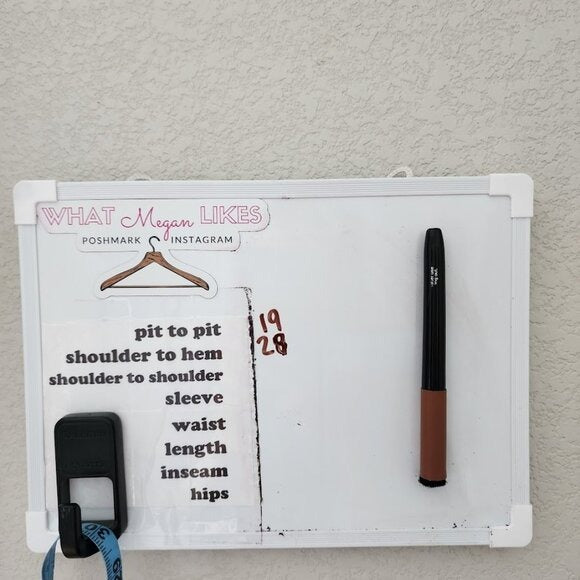 WHAT Megan LIKES
POSHMARK INSTAGRAM
pit to pit 19
shoulder to hem 28
shoulder to shoulder
sleeve
waist
length
inseam
hips
30